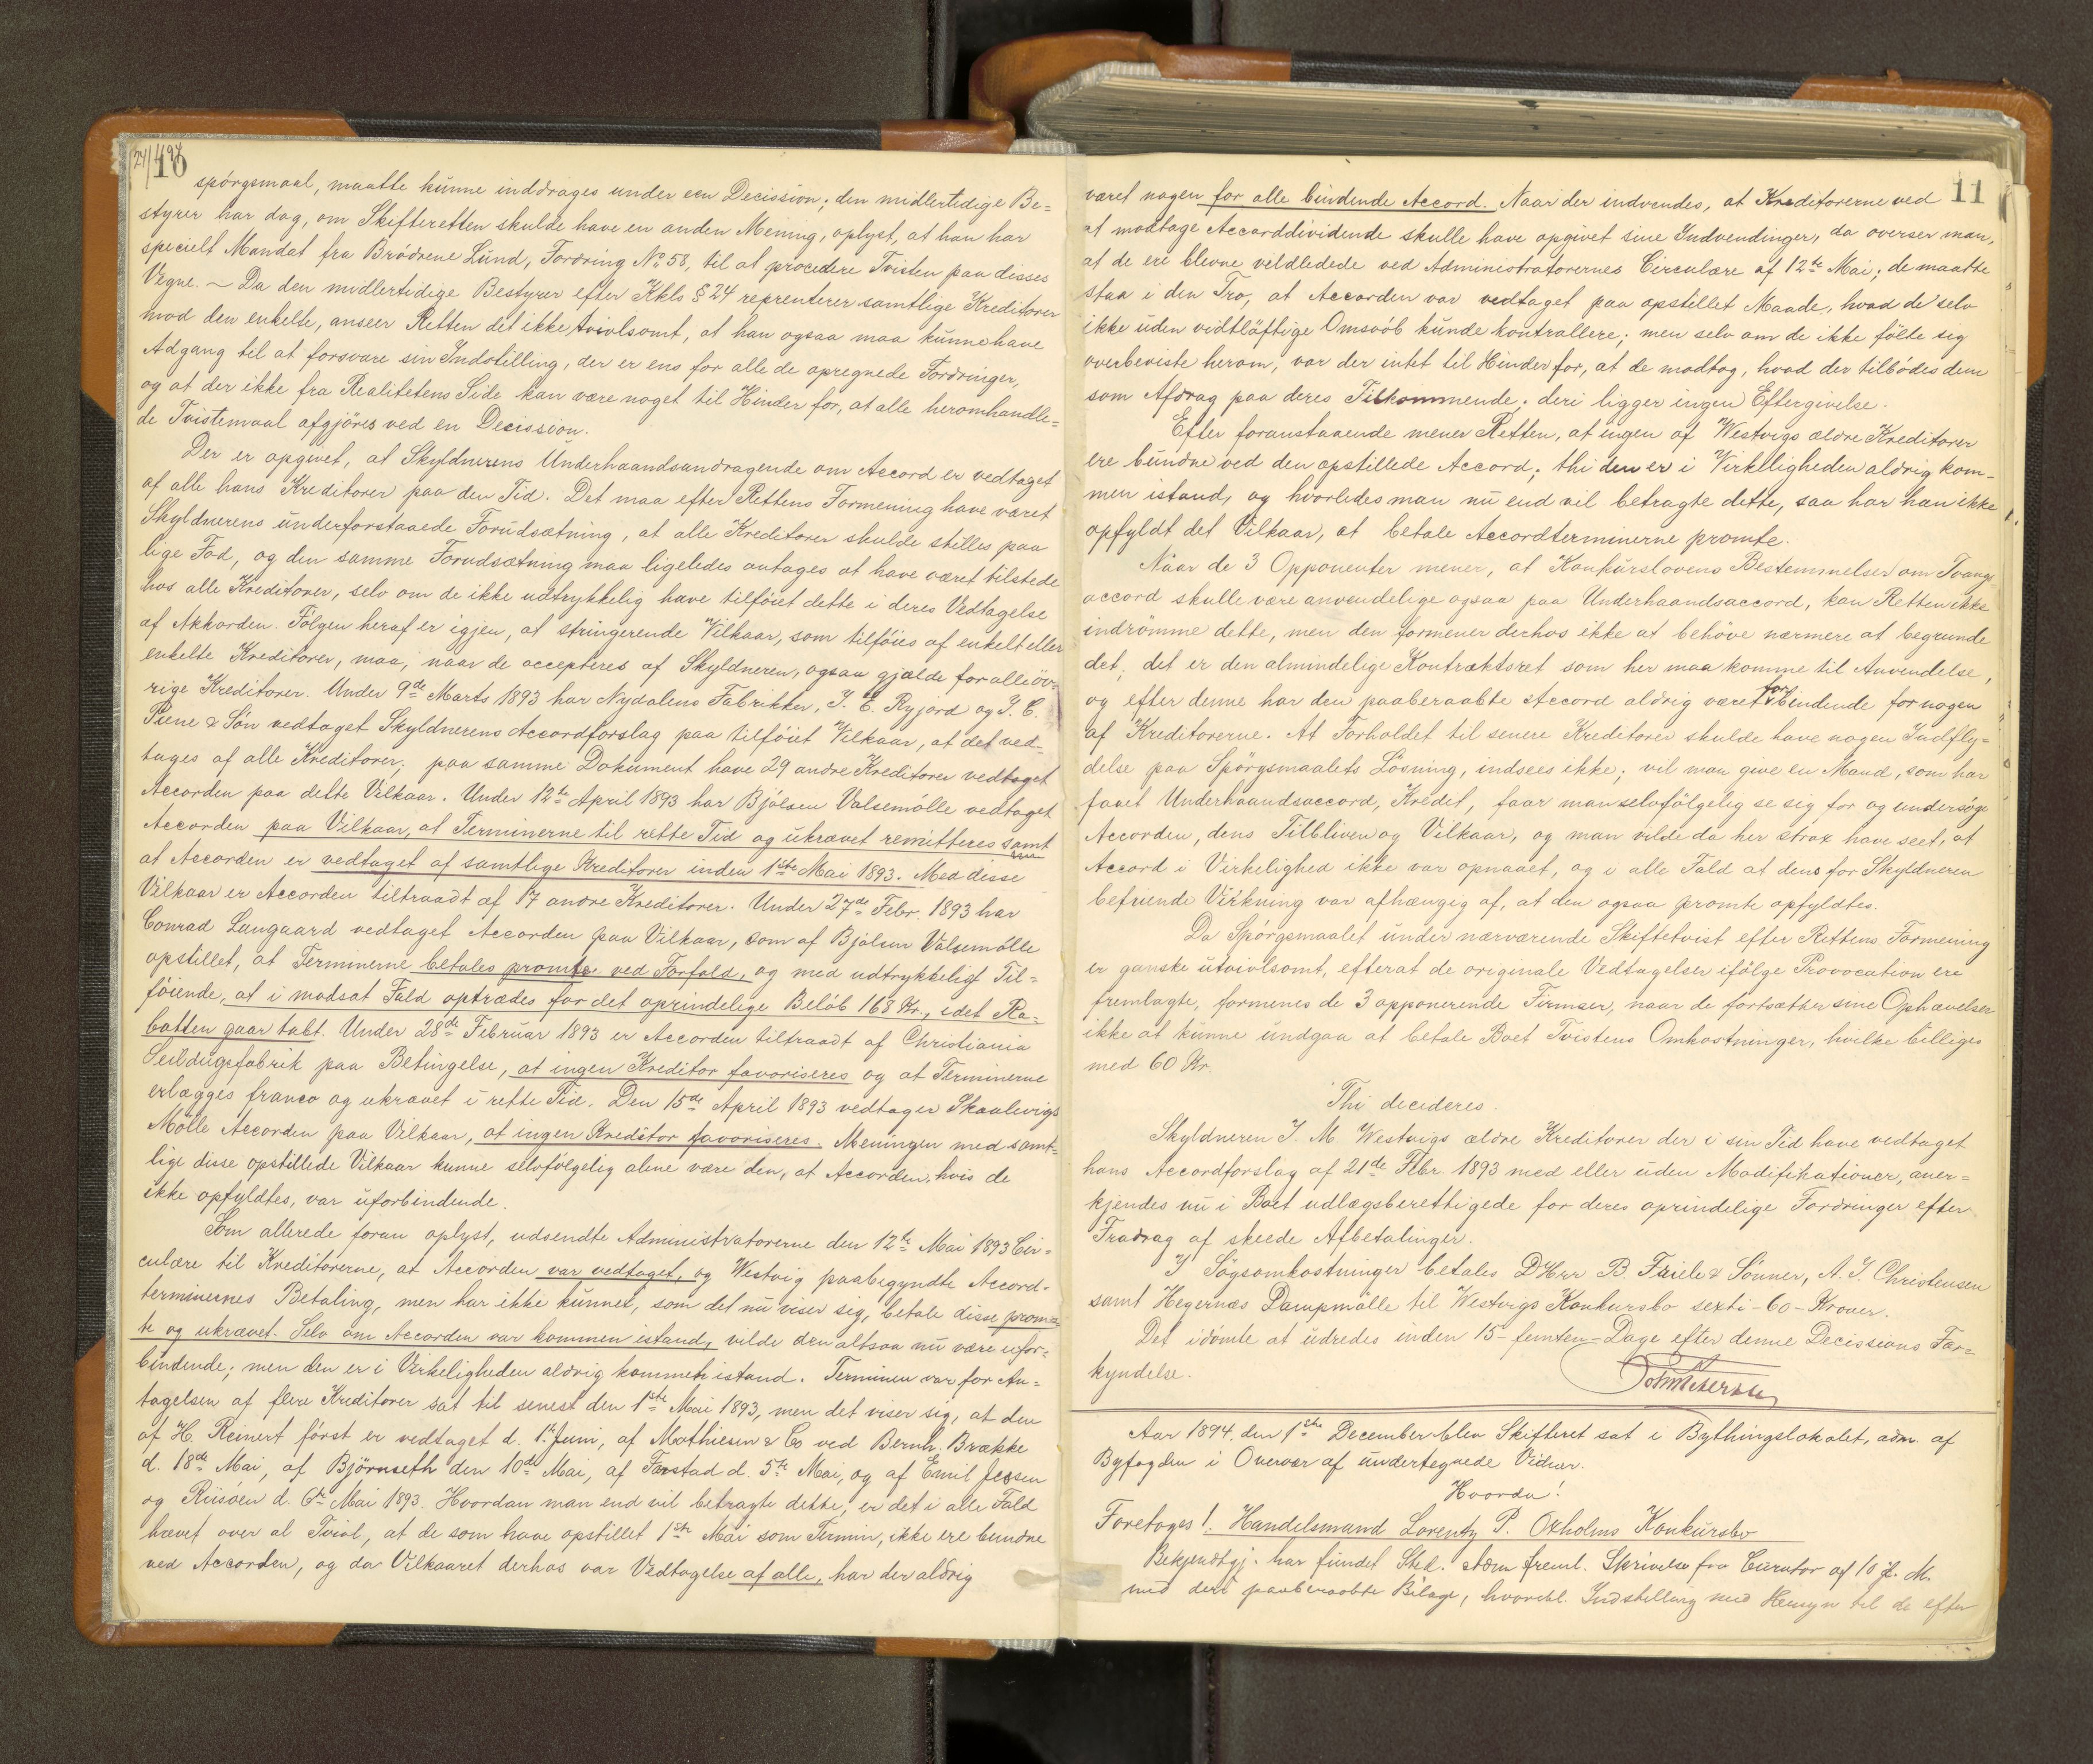 10
spörgsmaal, maatte kunne inddrages under een Decission; den midlertidige Be=
styrer har dog, om Skifteretten skulde have en anden Mening, oplyst, at han har
specielt Mandat fra Brödrene Lund, Fordring No 58, til at procedere Tvisten paa disses
Vegne. ~ Da den midlertidige Bestyrer efter Kkls § 24 reprenterer samtlige Kreditorer
mod den enkelte, anseer Retten det ikke tvivlsomt, at han ogsaa maa kunne have
Adgang til at forsvare sin Indstilling, der er ens for alle de opregnede Fordringer,
og at der ikke fra Realitetens Side kan være noget til Hinder for, at alle heromhandle=
de Tvistemaal afgjöres ved en Decission.
Der er opgivet, at Skyldnerens Underhaandsandragende om Accord er vedtaget
af alle hans Kreditorer paa den Tid. Det maa efter Rettens Formening have været
Skyldnerens underforstaaede Forudsætning, at alle Kreditorer skulde stilles paa
lige Fod, og den samme Forudsætning maa ligeledes antages at have været tilstede
hos alle Kreditorer, selv om de ikke udtrykkelig have tilföiet dette i deres Vedtagelse
af Akkorden. Fölgen heraf er igjen, at stringerende Vilkaar, som tilföies af enkelt eller
enkelte Kreditorer, maa, naar de accepteres af Skyldneren, ogsaa gjælde for alle öv=
rige Kreditorer. Under 9de Marts 1893 har Nydalens Fabrikker, J. E. Ryjord og J. C.
Piene & Sön vedtaget Skyldnerens Accordforslag paa tilföiet Vilkaar, at det ved=
tages af alle Kreditorer; paa samme Dokument have 29 andre Kreditorer vedtaget
Accorden paa dette Vilkaar. Under 12te April 1893 har Bjölsen Valsemölle vedtaget
Accorden paa Vilkaar, at Terminerne til rette Tid og ukrævet remitteres samt
at Accorden er vedtaget af samtlige Kreditorer inden 1ste Mai 1893. Med disse
Vilkaar er Accorden tiltraadt af 17 andre Kreditorer. Under 27de Febr. 1893 har
Conrad Langaard vedtaget Accorden paa Vilkaar, som af Bjölsen Valsemölle
opstillet, at Terminerne betales promte ved Forfald, og med udtrykkeligt Til=
föiende, at i modsat Fald optrædes for det oprindelige Belöb 168 Kr., idet Ra=
batten gaar tabt. Under 28de Februar 1893 er Accorden tiltraadt af Christiania
Seildugsfabrik paa Betingelse, at ingen Kreditor favoriseres og at Terminerne
erlægges franco og ukrævet i rette Tid. Den 15de April 1893 vedtager Skaalevigs
Mölle Accorden paa Vilkaar, at ingen Kreditor favoriseres. Meningen med samt=
lige disse opstillede Vilkaar kunne selvfölgelig alene være den, at Accorden, hvis de
ikke opfyldtes, var uforbindende.
Som allerede foran oplyst, udsendte Administratorerne den 12te Mai 1893 Cir=
culære til Kreditorerne, at Accorden var vedtaget, og Westvig paabegyndte Accord-
terminernes Betaling, men har ikke kunnet, som det nu viser sig, betale disse prom=
te og ukrævet. Selv om Accorden var kommen istand, vilde den altsaa nu være ufor=
bindende; men den er i Virkeligheden aldrig kommen istand. Terminen var for An=
tagelsen af flere Kreditorer sat til senest den 1ste Mai 1893, men det viser sig, at den
af H. Reinert först er vedtaget d. 1te Juni, af Mathiesen & Co ved Bernh. Brække
d. 18de Mai, af Björnseth den 10de Mai, af Farstad d. 5te Mai, og af Emil Jessen
og Riisöen d. 6te Mai 1893. Hvordan man end vil betragte dette, er det i alle Fald
hævet over al Tvivl, at de som have opstillet 1ste Mai som Termin, ikke ere bundne
ved Accorden, og da Vilkaaret derhos var Vedtagelse af alle, har der aldrig
11
været nogen for alle bindende Accord. Naar der indvendes, at Kreditorerne ved
at modtage Accorddividende skulle have opgivet sine Indvendinger, da overser man,
at de ere blevne vildledede ved Administratorernes Circulære af 12te Mai; de maatte
staa i den Tro, at Accorden var vedtaget paa opstillet Maade, hvad de selv
ikke uden vidtlöftige Omsvöb kunde kontrollere; men selv om de ikke fölte sig
overbeviste herom, var der intet til Hinder for, at de modtog, hvad der tilbödes dem
som Afdrag paa deres Tilkommende; deri ligger ingen Eftergivelse.
Efter foranstaaende mener Retten, at ingen af Westvigs ældre Kreditorer
ere bundne ved den opstillede Accord; thi den er i Virkeligheden aldrig kom-
men istand, og hvorledes man nu end vil betragte dette, saa har han ikke
opfyldt det Vilkaar, at betale Accordterminerne promte.
Naar de 3 Opponenter mener, at Konkurslovens Bestemmelser om Tvangs
accord skulle være anvendelige ogsaa paa Underhaandsaccord, kan Retten ikke
indrömme dette, men den formener derhos ikke at behöve nærmere at begrunde
det; det er den almindelige Kontraktsret som her maa komme til Anvendelse,
og efter denne har den paaberaabte Accord aldrig været forbindende for nogen
af Kreditorerne. At Forholdet til senere Kreditorer skulde have nogen Indfly=
delse paa Spörgsmaalets Lösning, indsees ikke; vil man give en Mand, som har
faaet Underhaandsaccord, Kredit, faar man selvfölgelig se sig for og undersöge
Accorden, dens Tilbliven og Vilkaar, og man vilde da her strax have seet, at
Accord i Virkelighed ikke var opnaaet, og i alle Fald at dens for Skyldneren
befriende Virkning var afhængig af, at den ogsaa promte opfyldtes.
Da Spörgsmaalet under nærværende Skiftetvist efter Rettens Formening
er ganske utvivlsomt, efterat de originale Vedtagelser ifölge Provocation ere
fremlagte, formenes de 3 opponerende Firmaer, naar de fortsætter sine Ophævelser
ikke at kunne undgaa at betale Boet Tvistens Omkostninger, hvilke billiges
med 60 Kr.
Thi decideres.
Skyldneren J. M. Westvigs ældre Kreditorer der i sin Tid have vedtaget
hans Accordforslag af 21de Febr. 1893 med eller uden Modifikationer, aner=
kjendes nu i Boet udlægsberettigede for deres oprindelige Fordringer efter
Fradrag af skeede Afbetalinger.
I Sögsomkostninger betales DHrr B. Friele & Sönner, A. J. Christensen
samt Hegernæs Dampmölle til Westvigs Konkursbo sexti - 60 - Kroner.
Det idömte at udredes inden 15 - femten - Dage efter denne Decissions For=
kyndelse.
Aar 1894. den 1ste December blev Skifteret sat i Bythingslokalet, adm. af
Byfogden i Overvær af undertegnede Vidner.
Hvorda!
Foretoges 1. Handelsmand Lorentz P. Oxholms Konkursbo
Bekjendtgj. har fundet Sted. Adm freml. Skrivelse fra Curator af 10 f. M.
med deri paaberaabte Bilage, hvorebl. Indstilling med Hensyn til de efter